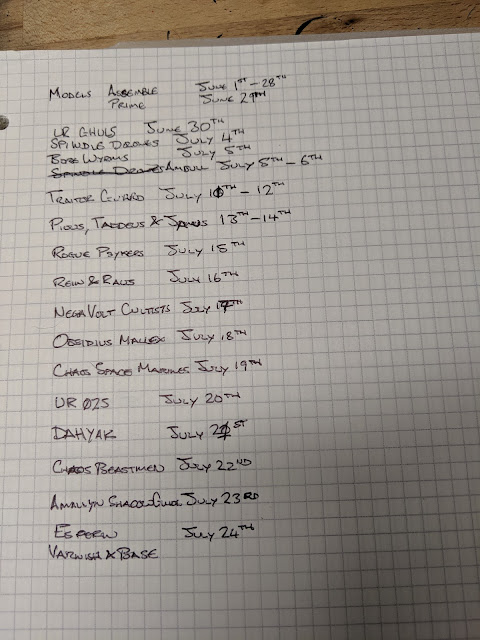 Models Assemble June 1st - 28th
Prime June 29th
UR Ghuls June 30th
Spindle Drones July 4th
Bore Wyrms July 5th
Spindle Drones Ambull July 5th - 6th
Traitor Guard July 10th - 12th
Pious, Taddeus & Janus 13th - 14th
Rogue Psykers July 15th
Rein & Raus July 16th
NegaVolt Cultists July 17th
Obsidius Mallex July 18th
Chaos Space Marines July 19th
UR 025 July 20th
Dahyak July 21st
Chaos Beastmen July 22nd
Amallyn Shadowguide July 23rd
Espern July 24th
Varnish & Base